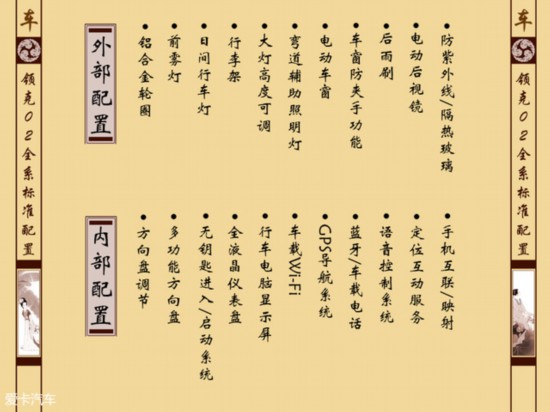 车
领克02全系标准配置
外部配置
• 铝合金轮圈
• 前雾灯
• 日间行车灯
• 行李架
• 大灯高度可调
• 弯道辅助照明灯
• 电动车窗
• 车窗防夹手功能
• 后雨刷
• 电动后视镜
• 防紫外线/隔热玻璃
内部配置
• 方向盘调节
• 多功能方向盘
• 无钥匙进入/启动系统
• 全液晶仪表盘
• 行车电脑显示屏
• 车载Wi-Fi
• GPS导航系统
• 蓝牙/车载电话
• 语音控制系统
• 定位互动服务
• 手机互联/映射
车
领克02全系标准配置
爱卡汽车